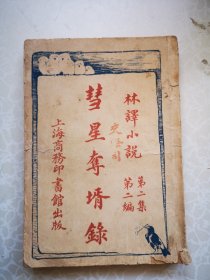 林譯小說
第二集
第二編
彗星奪壻錄
上海商務印書館出版